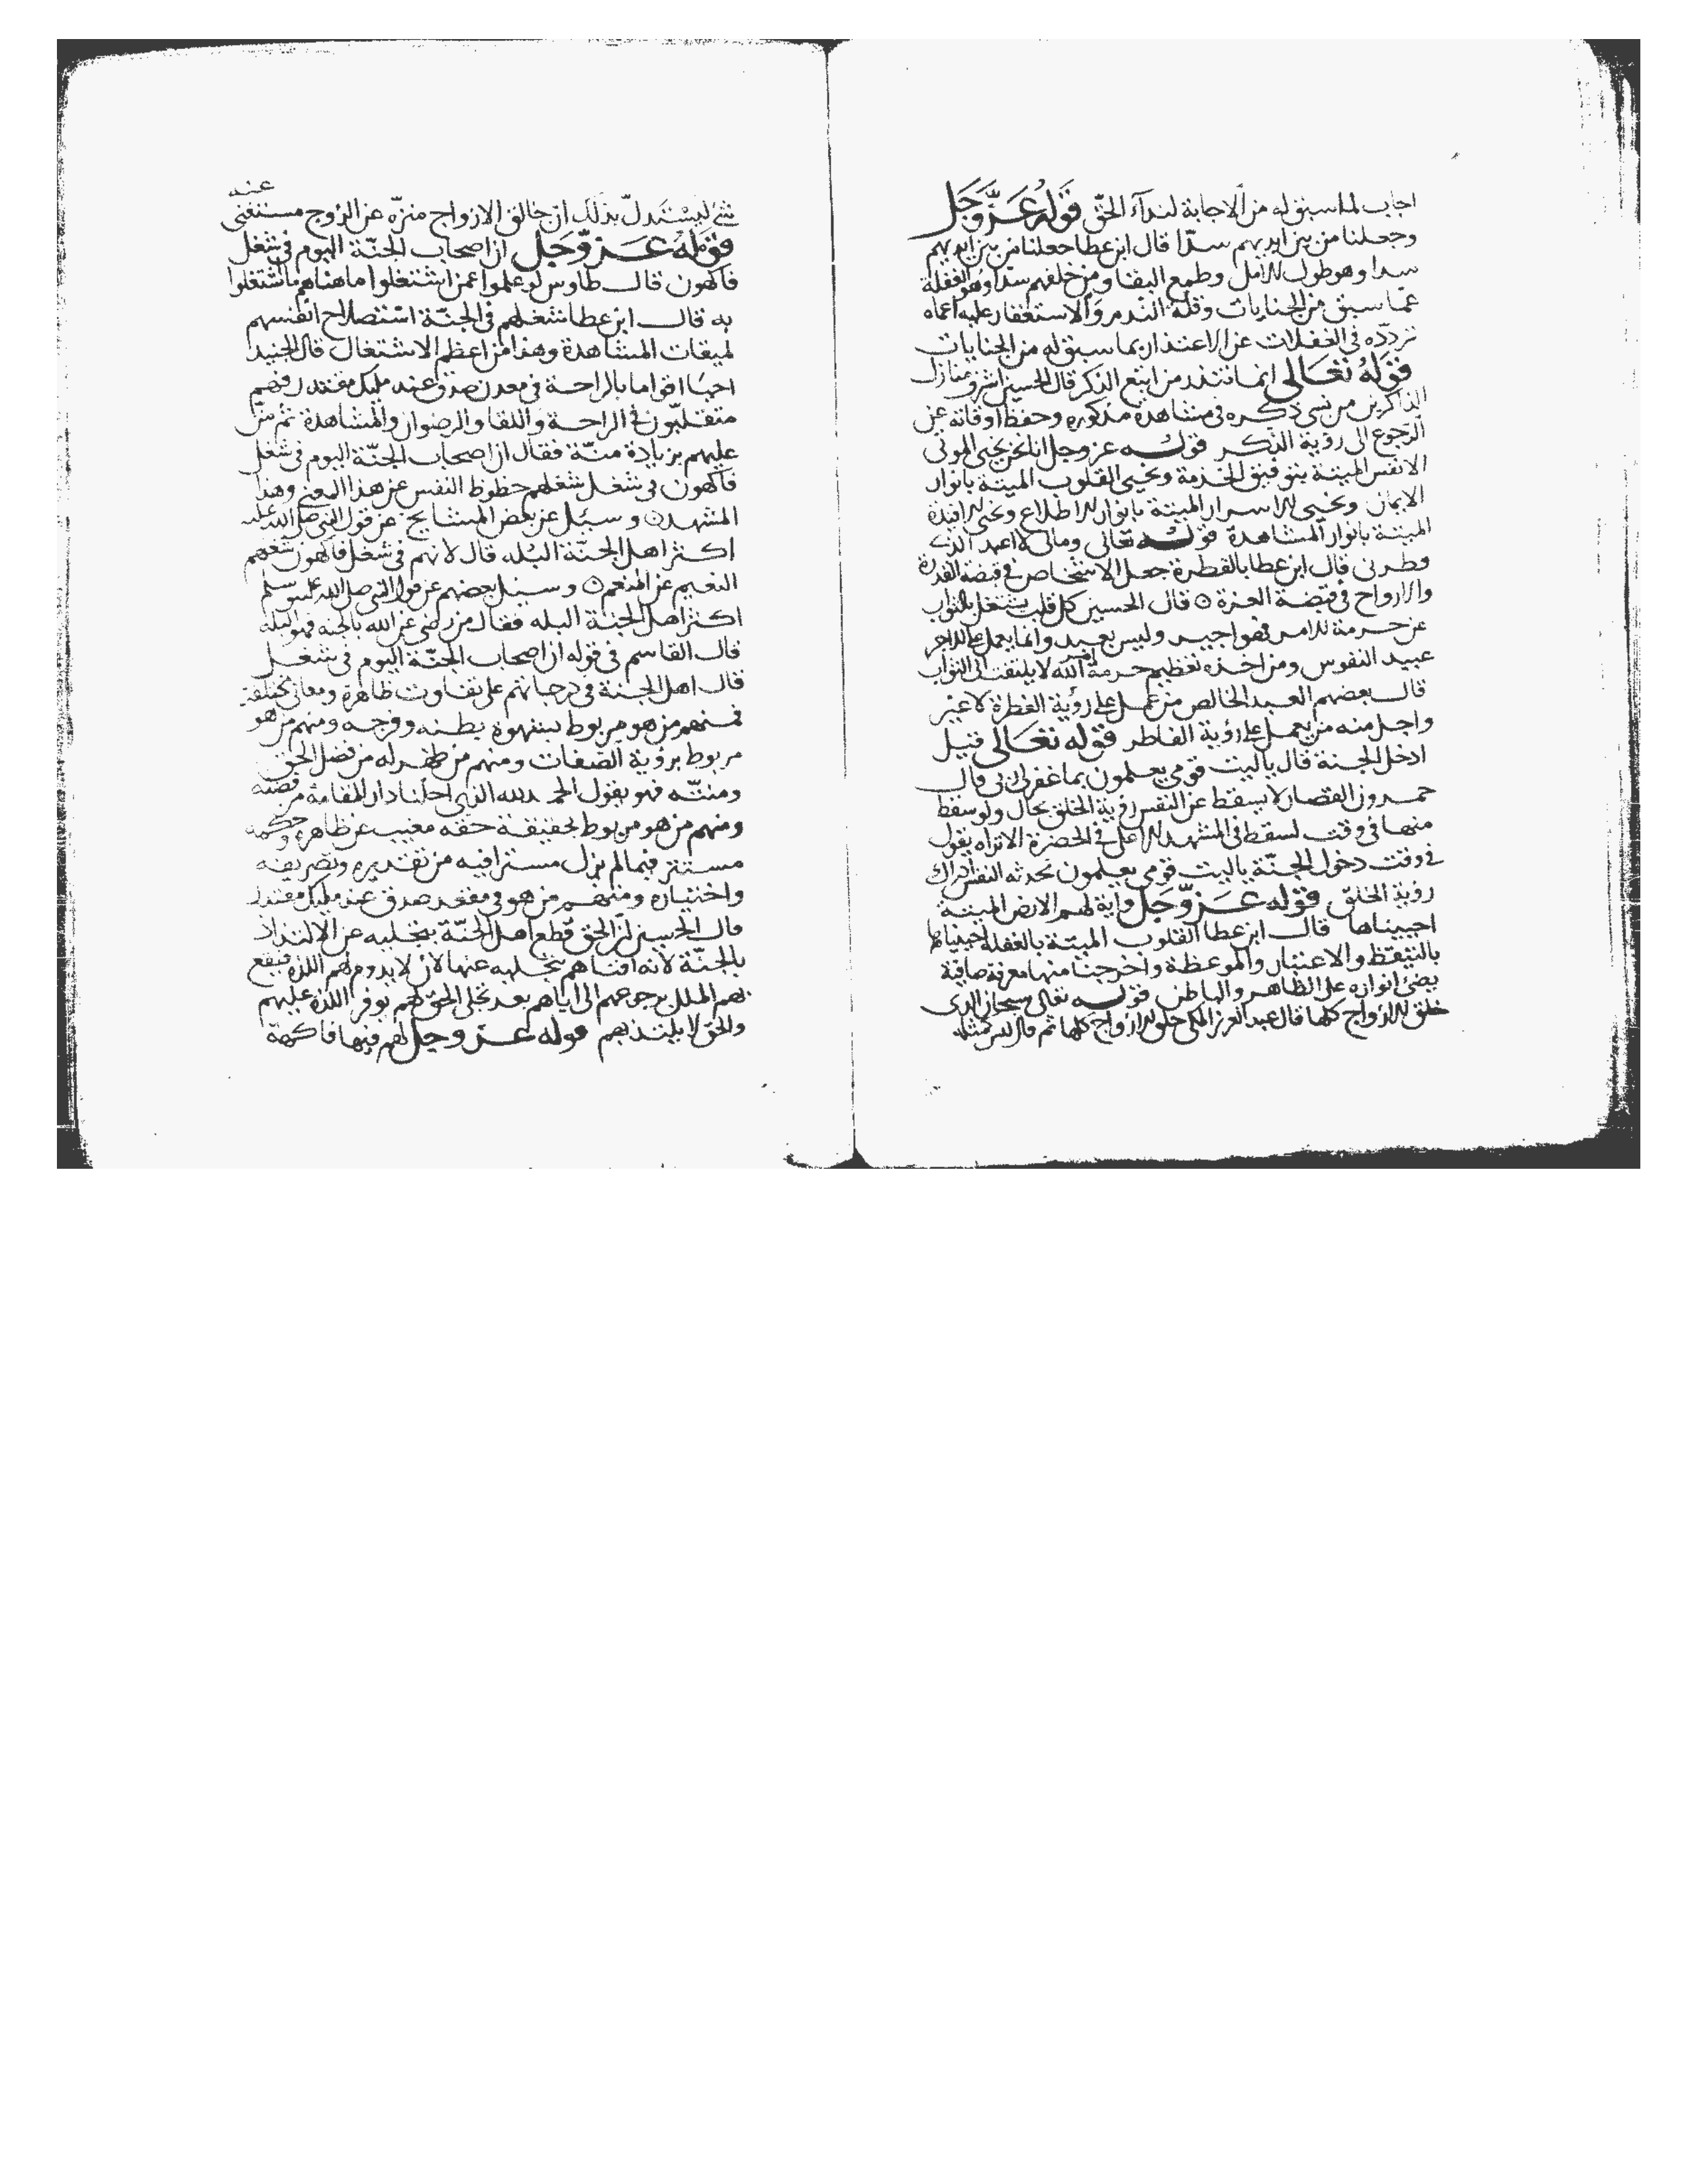 اجاب لما سبق له من الاجابة لنداء الحق قوله عز وجل
وجعلنا من بين ايديهم سدّا قال ابن عطا جعلنا من بين ايديهم
سدا وهو طول الامل وطمع البقا ومن خلفهم سدا وهو الغفلة
عمّا سبق من الجنايات وقلة الندم والاستغفار عليه اعماه
تردّده في الغفلات عن الاعتذار بما سبق له من الجنايات
قوله تعالى انما تنذر من اتبع الذكر قال الحسين اشرف منازل
الذاكرين من نسي ذكره في مشاهدة مذكوره وحفظ اوقاته عن
الرّجوع الى رؤية الذكر قوله عز وجل انا نحن نحيي الموتى
الانفس الميتة بتوفيق الخدمة ونحيي القلوب الميتة بانوار
الايمان ونحيي الاسرار الميتة بانوار الاطلاع ونحيي الافئدة
الميتة بانوار المشاهدة قوله تعالى ومالي لا اعبد الذي
فطرني قال ابن عطا بالفطرة جعل الاشخاص في قبضة القدرة
والارواح في قبضة العزة ۞ قال الحسين كل قلب يشتغل بالثواب
عن حرمة الامر فهو اجير وليس بعبد وانما يعمل على الاجر
عبيد النفوس ومن اخذه تعظيم حرمة امر الله لا يلتفت الى الثواب
قال بعضهم العبد الخالص من عمل على رؤية الفطرة لا غير
واجل منه من يعمل على رؤية الفاطر قوله تعالى قيل
ادخل الجنة قال ياليت قومي يعلمون بما غفر لي ربي قال
حمدون القصار لا يسقط عن النفس رؤية الخلق بحال ولو سقط
منها في وقت لسقط في المشهد الاعلى في الحضرة الا تراه يقول
في وقت دخول الجنّة ياليت قومي يعلمون تحدثه النفس ادراك
رؤية الخلق قوله عزّ وجل واية لهم الارض الميتة
احييناها قال ابن عطا القلوب الميتة بالغفلة احييناها
بالتيقظ والاعتبار والموعظة واخرجنا منها معرفة صافية
يضئ انواره على الظاهر والباطن قوله تعالى سبحان الذي
خلق الازواج كلها قال عبد العزيز المكي خلق الازواج كلها ثم قال ليس كمثله
شئ ليستدلّ بذلك ان خالق الازواج منزّه عن الزوج مستغنى عنه
قوله عزّ وجل ان اصحاب الجنّة اليوم في شغل
فاكهون قال طاوس لو علموا عمن اشتغلوا ما هناهم ما اشتغلوا
به قال ابن عطا شغلهم في الجنّة استصلاح انفسهم
لميقات المشاهدة وهذا من اعظم الاشتغال قال الجنيد
احيا اقواما بالراحة في معدن صدق عند مليك مقتدر فهم
متقلبّون في الراحة واللقا والرضوان والمشاهدة ثم منّ
عليهم بزيادة منّة فقال ان اصحاب الجنّة اليوم في شغل
فاكهون في شغل شغلهم حظوظ النفس عن هذا المعني وهذا
المشهد ۞ وسئل عن بعض المشايخ عن قول النبي صلى الله عليه
اكثر اهل الجنّة البله قال لانهم في شغل فاكهون شغلهم
النعيم عن المنعم ۞ وسئل بعضهم عن قول النبي صلى الله عليه وسلم
اكثر اهل الجنة البله فقال من رضي عن الله بالجنه فهو ابله
قال القاسم في قوله ان اصحاب الجنّة اليوم في شغل
قال اهل الجنة في درجاتهم على تفاوت ظاهرة ومعاني مختلفة
فمنهم من هو مربوط بشهوة بطنه وفرجه ومنهم من هو
مربوط برؤية الصفات ومنهم من ظهر له من فضل الحق
ومنّته فهو يقول الحمد لله الذي احلنا دار المقامة من فضله
ومنهم من هو مربوط بحقيقة حقه مغيب عن ظاهره وحكمه
مستتر فيما لم يزل مسترا فيه من تقديره وتصريفه
واختياره ومنهم من هو في مقعد صدق عند مليك مقتدر
قال الحسين ان الحق قطع اهل الجنّة بتجليه عن الالتذاذ
بالجنّة لانه افناهم بتجليه عنها لان لا يدوم لهم اللذة فيقع
بهم الملل برجوعهم الى اياهم بعد تجلي الحق لهم يوفر اللذة عليهم
والحق لا يلتذ بهم قوله عزّ وجل لهم فيها فاكهة